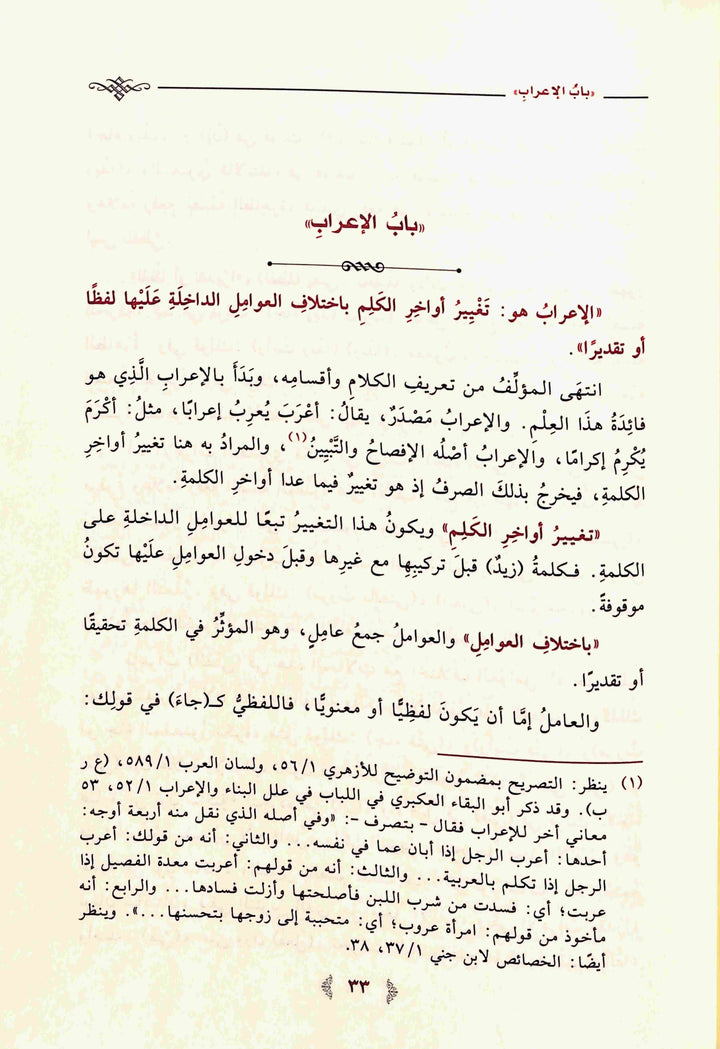 «بابُ الإعرابِ»
«بابُ الإعرابِ»
«الإعرابُ هو: تَغْيِيرُ أواخِرِ الكَلِمِ باختلافِ العوامِلِ الداخِلَةِ عَلَيْها لفظًا
أو تقديرًا».
انتهَى المؤلِّفُ من تعريفِ الكلامِ وأقسامِه، وبَدَأَ بالإعرابِ الَّذِي هو
فائِدَةُ هذا العِلْمِ. والإعرابُ مَصْدَرٌ، يقالُ: أعْرَبَ يُعرِبُ إعرابًا، مثلُ: أكْرَمَ
يُكْرِمُ إكرامًا، والإعرابُ أصْلُه الإفصاحُ والتَّبْيِينُ(١)، والمرادُ به هنا تغييرُ أواخِرِ
الكلمةِ، فيخرجُ بذلكَ الصرفُ إذ هو تغييرٌ فيما عدا أواخرِ الكلمةِ.
«تغييرُ أواخِرِ الكَلِمِ» ويكونُ هذا التغييرُ تبعًا للعوامِلِ الداخلةِ على
الكلمةِ. فـكلمةُ (زيدٌ) قبلَ تركيبِها مع غيرِها وقبلَ دخولِ العوامِلِ علَيْها تكونُ
موقوفةً.
«باختلافِ العوامِلِ» والعواملُ جمعُ عاملٍ، وهو المؤثِّرُ في الكلمةِ تحقيقًا
أو تقديرًا.
والعاملُ إمَّا أن يَكونَ لفظِيًّا أو معنويًّا، فاللفظيُّ كـ(جاءَ) في قولِك:
(١) ينظر: التصريح بمضمون التوضيح للأزهري ٥٦/١، ولسان العرب ٥٨٩/١، (ع ر
ب). وقد ذكر أبو البقاء العكبري في اللباب في علل البناء والإعراب ٥٢/١، ٥٣
معاني أخر للإعراب فقال – بتصرف –: «وفي أصله الذي نقل منه أربعة أوجه:
أحدها: أعرب الرجل إذا أبان عما في نفسه... والثاني: أنه من قولك: أعرب
الرجل إذا تكلم بالعربية... والثالث: أنه من قولهم: أعربت معدة الفصيل إذا
عربت؛ أي: فسدت من شرب اللبن فأصلحتها وأزلت فسادها... والرابع: أنه
مأخوذ من قولهم: امرأة عروب؛ أي: متحببة إلى زوجها بتحسنها...». وينظر
أيضًا: الخصائص لابن جني ٣٧/١، ٣٨.
٣٣